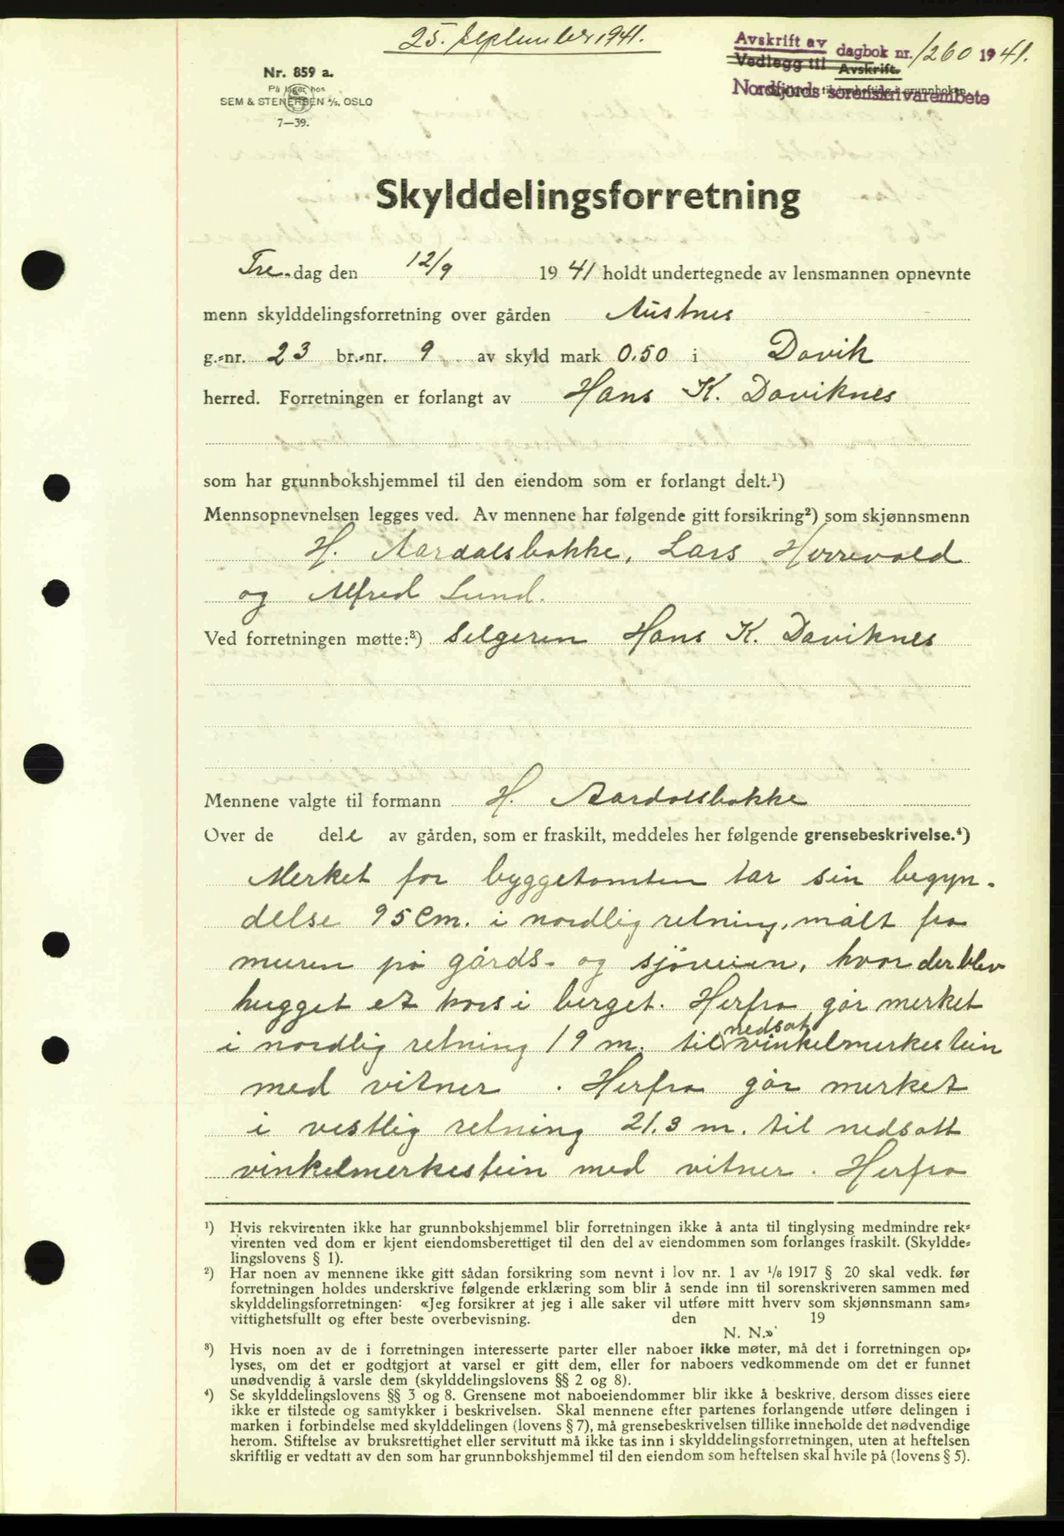 25. September 1941.
Avskrift av dagbok nr. 1260 1941.
Vedlegg til Avskrift.
Nordfjords sorenskrivarembete
Nr. 859 a.
På lager hos
SEM & STENERSEN A/S, OSLO
7—39.
Skylddelingsforretning
Tre-dag den 12/9 1941 holdt undertegnede av lensmannen opnevnte
menn skylddelingsforretning over gården Austnes
g.-nr. 23 br.-nr. 9 av skyld mark 0.50 i Davik
herred. Forretningen er forlangt av Hans K. Daviknes
som har grunnbokshjemmel til den eiendom som er forlangt delt.¹)
Mennsopnevnelsen legges ved. Av mennene har følgende gitt forsikring²) som skjønnsmenn
H. Aardalsbakke, Lars Horrevold
og Alfred Lund.
Ved forretningen møtte:³) Selgeren Hans K. Daviknes
Mennene valgte til formann H. Aardalsbakke
Over de dele av gården, som er fraskilt, meddeles her følgende grensebeskrivelse.⁴)
Merket for byggetomten tar sin begyn-
delse 95 Cm. i nordlig retning, målt fra
muren på gårds- og sjöveien, hvor der blev
hugget et kors i berget. Herfra går merket
i nordlig retning 19 m. til nedsat vinkelmerkestein
med vitner. Herfra går merket
i vestlig retning 21.3 m. til nedsatt
vinkelmerkestein med vitner. Herfra
¹) Hvis rekvirenten ikke har grunnbokshjemmel blir forretningen ikke å anta til tinglysing medmindre rek-
virenten ved dom er kjent eiendomsberettiget til den del av eiendommen som forlanges fraskilt. (Skyldde-
lingslovens § 1).
²) Har noen av mennene ikke gitt sådan forsikring som nevnt i lov nr. 1 av 1/6 1917 § 20 skal vedk. før
forretningen holdes underskrive følgende erklæring som blir å sende inn til sorenskriveren sammen med
skylddelingsforretningen: «Jeg forsikrer at jeg i alle saker vil utføre mitt hverv som skjønnsmann sam-
vittighetsfullt og efter beste overbevisning. den 19
N. N.»
³) Hvis noen av de i forretningen interesserte parter eller naboer ikke møter, må det i forretningen op-
lyses, om det er godtgjort at varsel er gitt dem, eller for naboers vedkommende om det er funnet
unødvendig å varsle dem (skylddelingslovens §§ 2 og 8).
⁴) Se skylddelingslovens §§ 3 og 8. Grensene mot naboeiendommer blir ikke å beskrive, dersom disses eiere
ikke er tilstede og samtykker i beskrivelsen. Skal mennene efter partenes forlangende utføre delingen i
marken i forbindelse med skylddelingen (lovens § 7), må grensebeskrivelsen tillike inneholde det nødvendige
herom. Stiftelse av bruksrettighet eller servitutt må ikke tas inn i skylddelingsforretningen, uten at heftelsen
skriftlig er vedtatt av den som har grunnbokshjemmel til den eiendom som heftelsen skal hvile på (lovens § 5).